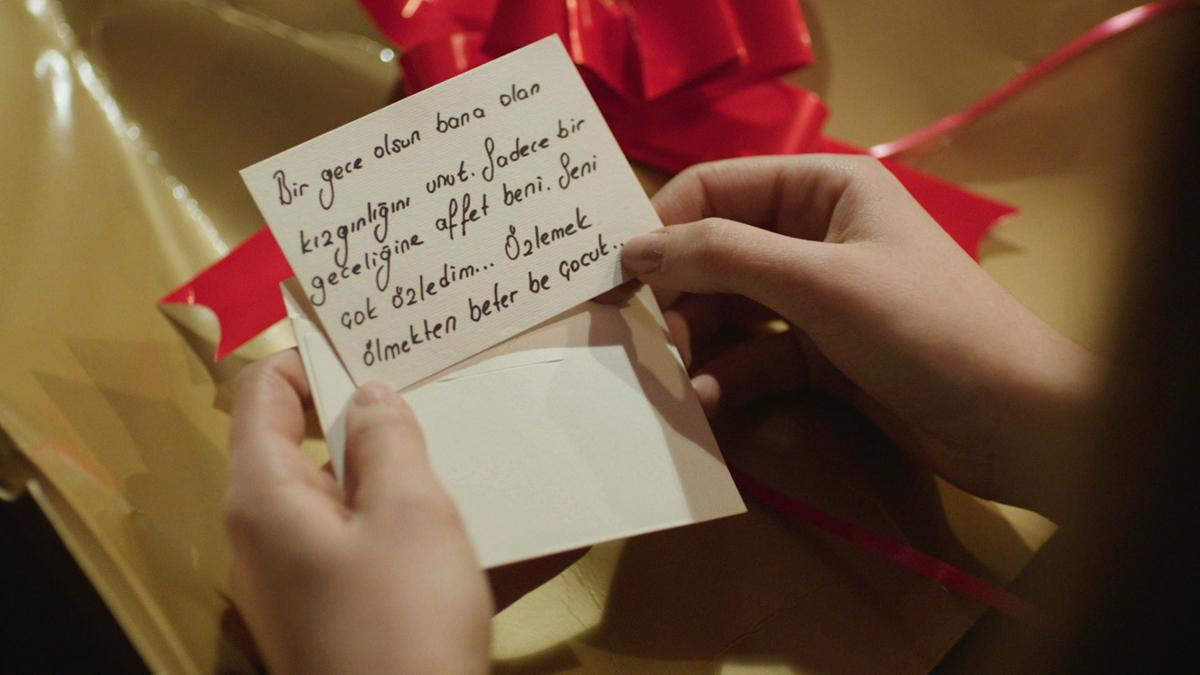 Bir gece olsun bana olan
kızgınlığını unut. Sadece bir
geceliğine affet beni. Seni
çok özledim... Özlemek
ölmekten beter be çocuk..